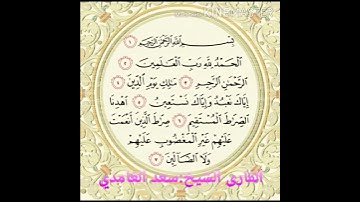 بِسْمِ اللَّهِ الرَّحْمَٰنِ الرَّحِيمِ ١
الْحَمْدُ لِلَّهِ رَبِّ الْعَالَمِينَ ٢
الرَّحْمَٰنِ الرَّحِيمِ ٣ مَالِكِ يَوْمِ الدِّينِ ٤
إِيَّاكَ نَعْبُدُ وَإِيَّاكَ نَسْتَعِينُ ٥ اهْدِنَا
الصِّرَاطَ الْمُسْتَقِيمَ ٦ صِرَاطَ الَّذِينَ أَنْعَمْتَ
عَلَيْهِمْ غَيْرِ الْمَغْضُوبِ عَلَيْهِمْ
وَلَا الضَّالِّينَ ٧
القارئ الشيخ:سعد الغامدي